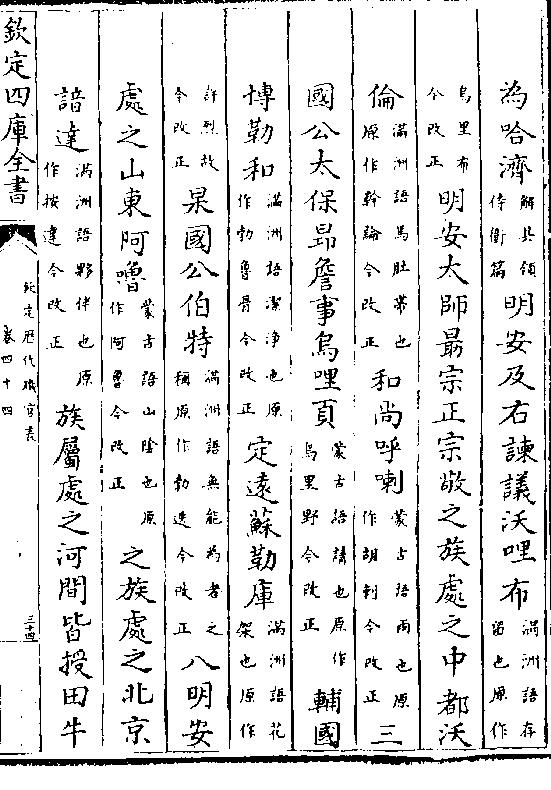 為哈濟解具領侍衛篇明安及右諫議沃哩布滿洲語存留也原作
烏里布今改正明安太師最宗正宗敬之族處之中都沃
倫滿洲語馬肚帶也原作幹論今改正和尚呼喇蒙古語雨也原作胡剌今改正三
國公太保昂詹事烏哩頁蒙古語請也原作烏里野今改正輔國
博勒和滿洲語潔淨也原作勃魯骨今改正定遠蘇勒庫滿洲語花架也原作
許烈故今改正杲國公伯特滿洲語無能為者之稱原作勃迭今改正八明安
處之山東阿嚕蒙古語山陰也原作阿魯今改正之族處之北京
諳達滿洲語夥伴也原作按達今改正族屬處之河間皆授田牛
欽定四庫全書
欽定歷代職官表
卷四十四
三十四